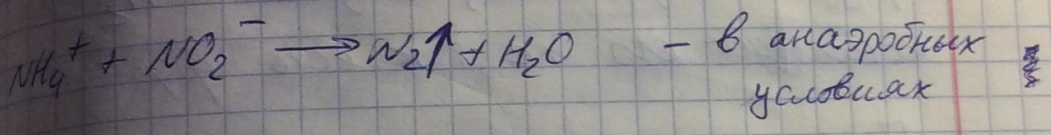 NH₄⁺ + NO₂⁻ → N₂↑ + H₂O – в анаэробных
условиях